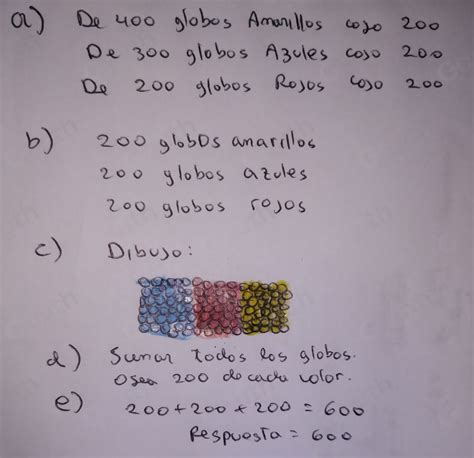 a) De 400 globos Amarillos cojo 200
De 300 globos Azules cojo 200
De 200 globos Rojos cojo 200
b) 200 globos amarillos
200 globos azules
200 globos rojos
c) Dibujo:
d) Sumar todos los globos.
Osea 200 de cada color.
e) 200 + 200 + 200 = 600
Respuesta = 600